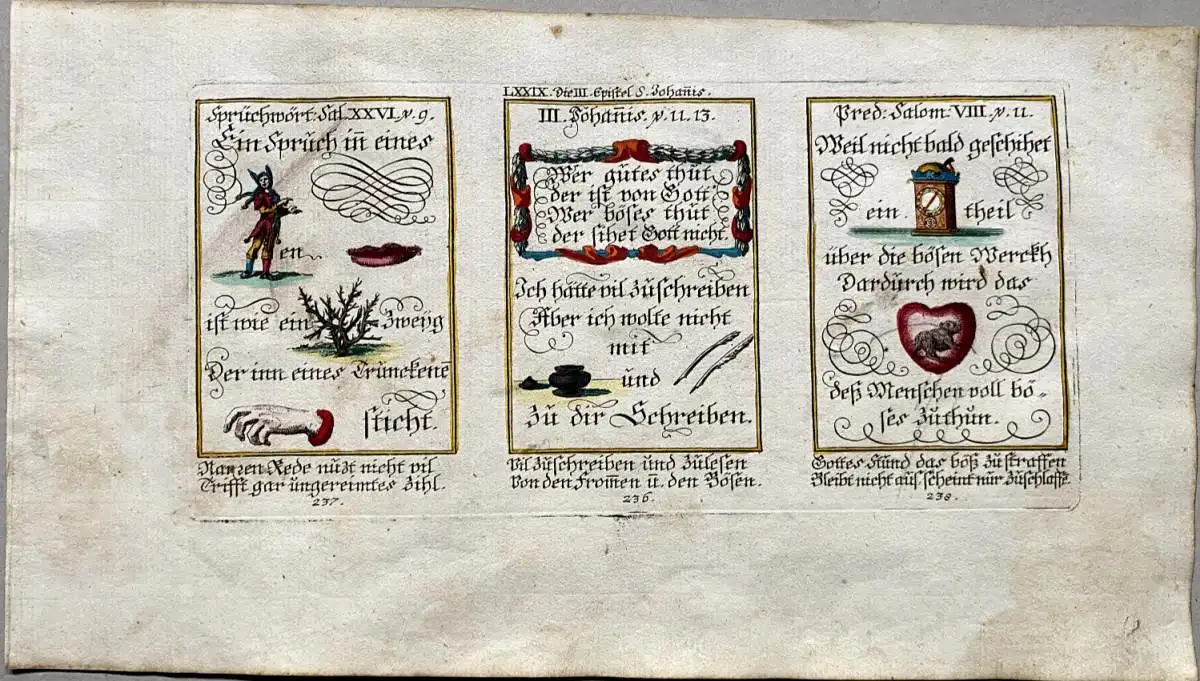 LXXIX. Die III. Epistel S. Johan̅is.
Sprüchwört: Sal. XXVI. v. 9.
Ein Sprüch in̅ eines
en
ist wie ein Zweÿg
Der inn eines Trünckene̅
sticht.
Narren Rede nüzt nicht vil
Trifft gar üngereimtes Zihl.
237.
III. Johan̅is. v. 11. 13.
Wer gütes thüt,
der ist von Gott,
Wer böses thüt
der sihet Gott nicht.
Ich hätte vil Züschreiben
Aber ich wolte nicht
mit
ünd
Zü dir Schreiben.
Vil Züschreiben ünd Zülesen
Von den From̅en ü. den Bösen.
236.
Pred: Salom: VIII. v. 11.
Weil nicht bald geschihet
ein theil
über die bösen Werckh
Dardürch wird das
deß Menschen voll bö-
ses Züthün.
Gottes Stünd das böß Zü straffen
Bleibt nicht aüs scheint nür Züschlaffe̅.
238.